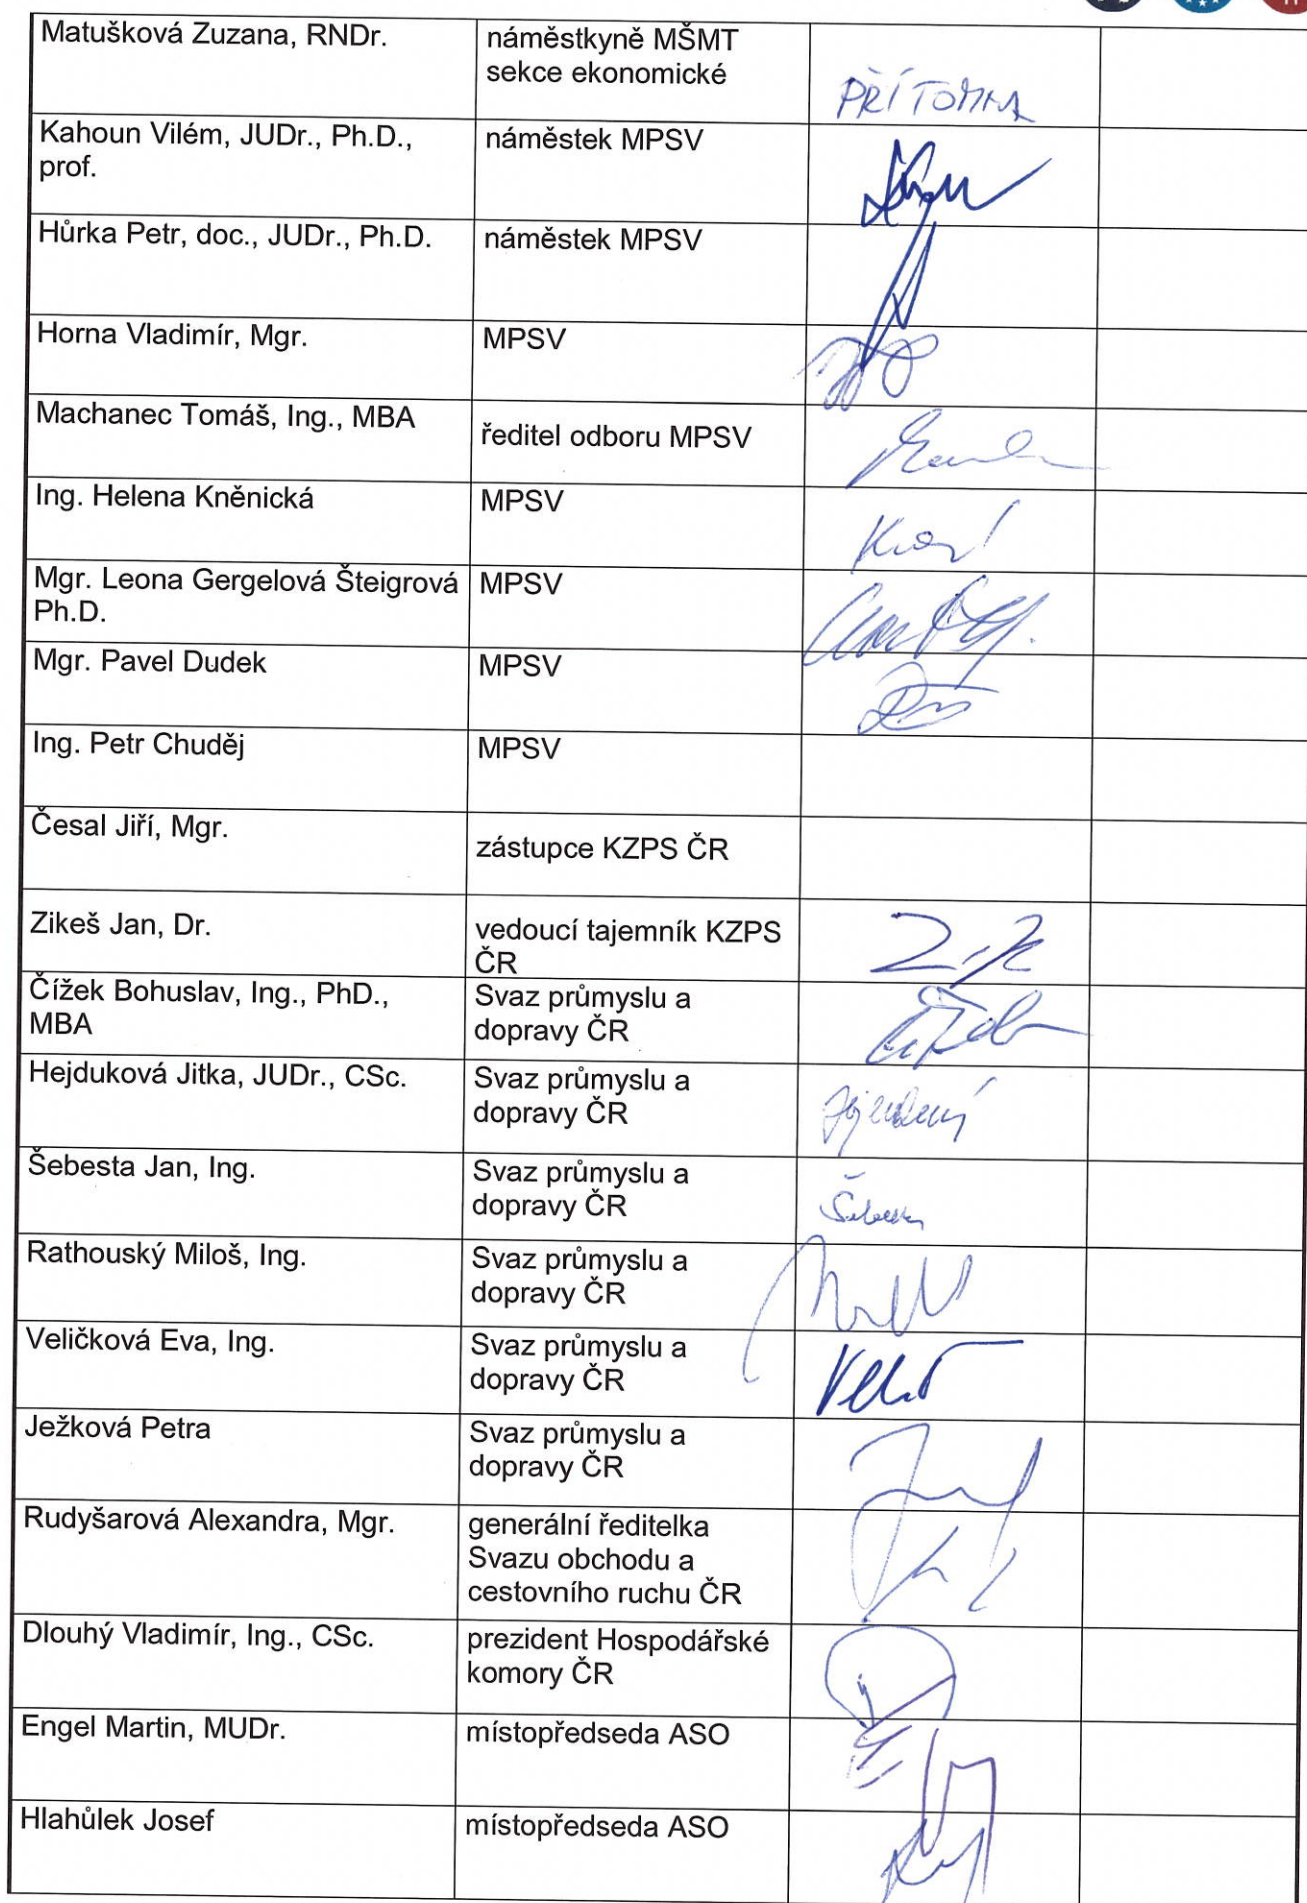 Matušková Zuzana, RNDr.
náměstkyně MŠMT
sekce ekonomické
PŘÍTOMNA
Kahoun Vilém, JUDr., Ph.D.,
prof.
náměstek MPSV
Hůrka Petr, doc., JUDr., Ph.D.
náměstek MPSV
Horna Vladimír, Mgr.
MPSV
Machanec Tomáš, Ing., MBA
ředitel odboru MPSV
Ing. Helena Kněnická
MPSV
Mgr. Leona Gergelová Šteigrová
Ph.D.
MPSV
Mgr. Pavel Dudek
MPSV
Ing. Petr Chuděj
MPSV
Česal Jiří, Mgr.
zástupce KZPS ČR
Zikeš Jan, Dr.
vedoucí tajemník KZPS
ČR
Čížek Bohuslav, Ing., PhD.,
MBA
Svaz průmyslu a
dopravy ČR
Hejduková Jitka, JUDr., CSc.
Svaz průmyslu a
dopravy ČR
Šebesta Jan, Ing.
Svaz průmyslu a
dopravy ČR
Rathouský Miloš, Ing.
Svaz průmyslu a
dopravy ČR
Veličková Eva, Ing.
Svaz průmyslu a
dopravy ČR
Ježková Petra
Svaz průmyslu a
dopravy ČR
Rudyšarová Alexandra, Mgr.
generální ředitelka
Svazu obchodu a
cestovního ruchu ČR
Dlouhý Vladimír, Ing., CSc.
prezident Hospodářské
komory ČR
Engel Martin, MUDr.
místopředseda ASO
Hlahůlek Josef
místopředseda ASO